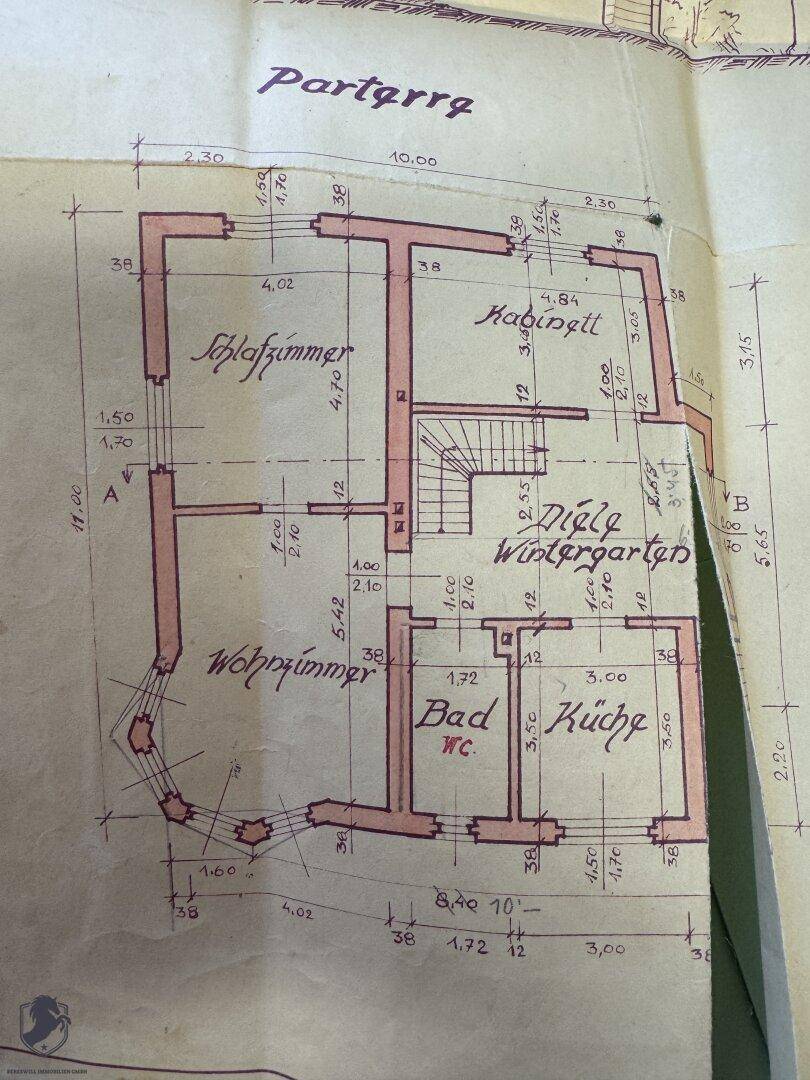 Parterre
2.30
10.00
2.30
1,50
1,70
38
38
1.50
1.70
38
38
4.02
38
4.84
38
Schlafzimmer
Kabinett
3.05
3,15
4.70
12
1.00
2,10
12
1,50
1,50
1,70
A
B
11,00
12
1.00
2,10
2,55
2,55
3.45
Diele
Wintergarten
5,65
1.00
2,10
5,42
1,00
2,10
12
1,00
2,10
12
Wohnzimmer
38
1,72
12
3.00
38
Bad
WC.
Küche
3,50
3,50
2,20
38
38
1,50
1,70
38
1.60
8,40 10'-
38
4.02
38
1,72
12
3,00
38
BERGSWILL IMMOBILIEN GMBH